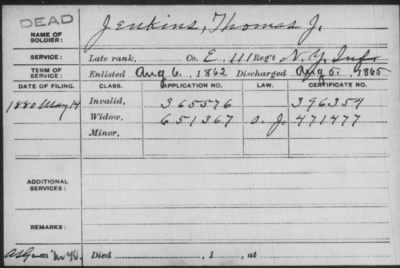 DEAD
NAME OF SOLDIER: Jenkins, Thomas J.
SERVICE: Late rank, Co. E. 111 Reg't N. Y. Inf.
TERM OF SERVICE: Enlisted Aug 6. 1862 Discharged 1865
DATE OF FILING. CLASS. APPLICATION NO. LAW. CERTIFICATE NO.
1880 May 14 Invalid, 365576 396354
Widow, 651367 O. J. 471477
Minor,
ADDITIONAL SERVICES:
REMARKS:
Died , 1 , at